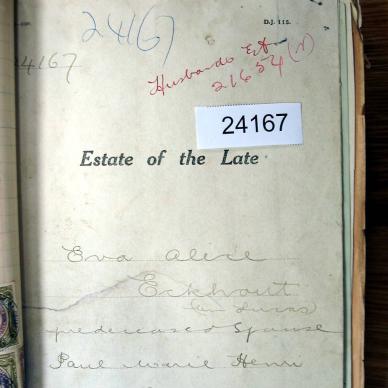 24167
D.J. 115.
4167
Husbands Est
21654 (N)
24167
Estate of the Late
Eva Alice
Eckhout
predeceased Spouse
Paul Marie Henri